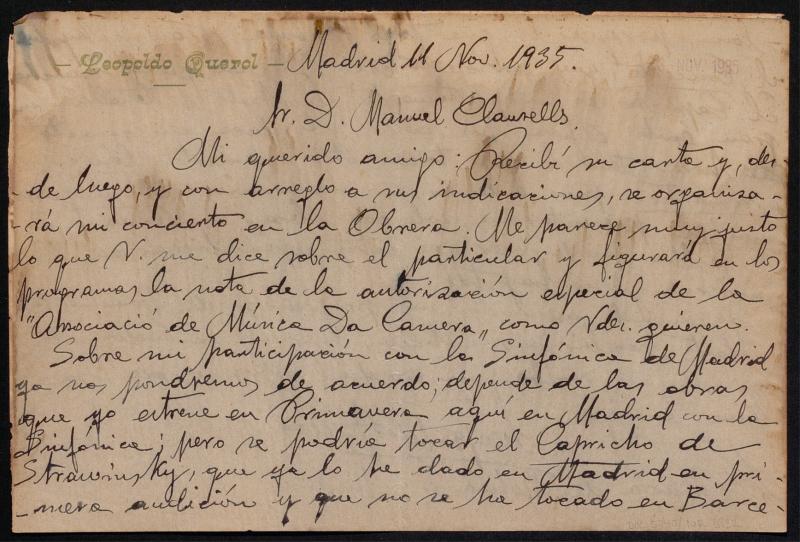 - Leopoldo Querol - Madrid 11 Nov. 1935.
NOV. 1935
Sr. D. Manuel Clausells.
Mi querido amigo: Recibí su carta y, des-
-de luego, y con arreglo a sus indicaciones, se organiza-
-rá mi concierto en la Obrera. Me parece muy justo
lo que V. me dice sobre el particular y figurará en los
programas la nota de la autorización especial de la
"Associació de Música Da Camera", como Vdes. quieren.
Sobre mi participación con la Sinfónica de Madrid
ya nos pondremos de acuerdo; depende de las obras
que yo estrene en Primavera aquí en Madrid con la
Sinfónica; pero se podría tocar el Capricho de
Strawinsky, que ya lo he dado en Madrid en pri-
-mera audición y que no se ha tocado en Barce-